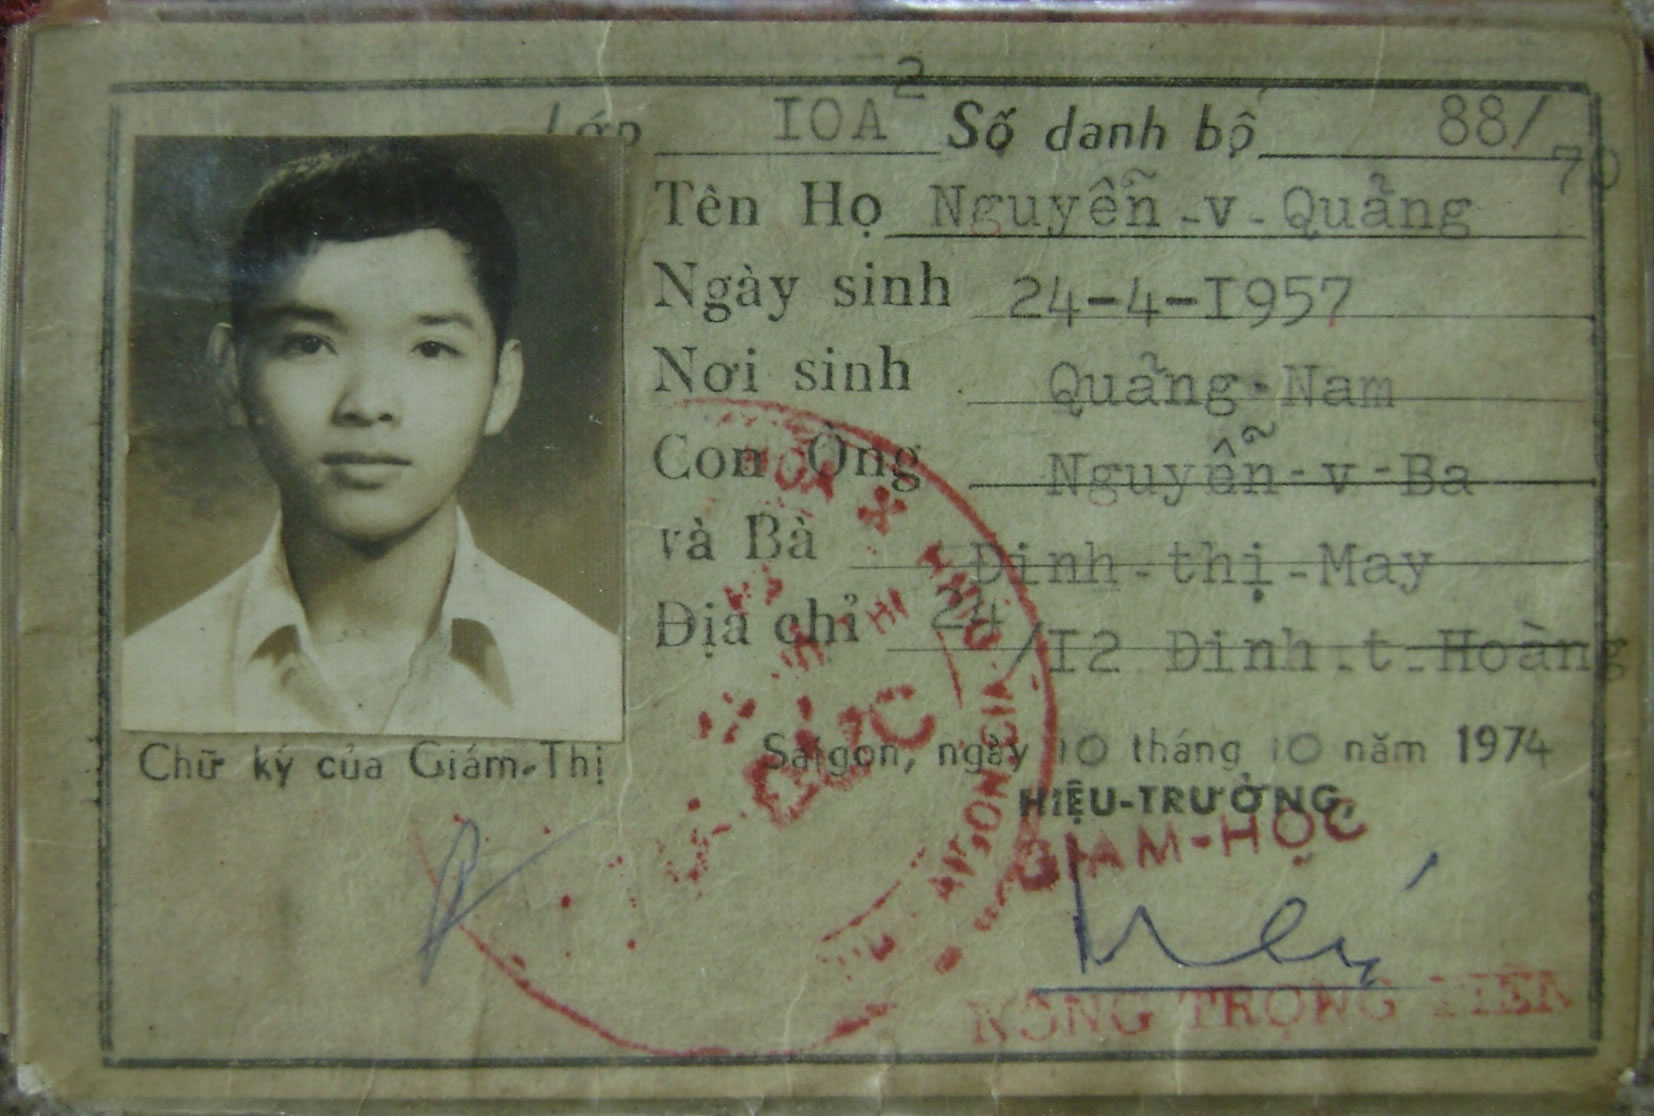 Lớp IOA² Số danh bộ 88/70
Tên Họ Nguyễn-v-Quảng
Ngày sinh 24-4-I957
Nơi sinh Quảng-Nam
Con Ông Nguyễn-v-Ba
và Bà Đinh-thị-May
Địa chỉ 24/I2 Đinh-t-Hoàng
Chữ ký của Giám-Thị
Saigon, ngày 10 tháng 10 năm 1974
HIỆU-TRƯỞNG,
GIAM-HỌC
NÔNG TRỌNG